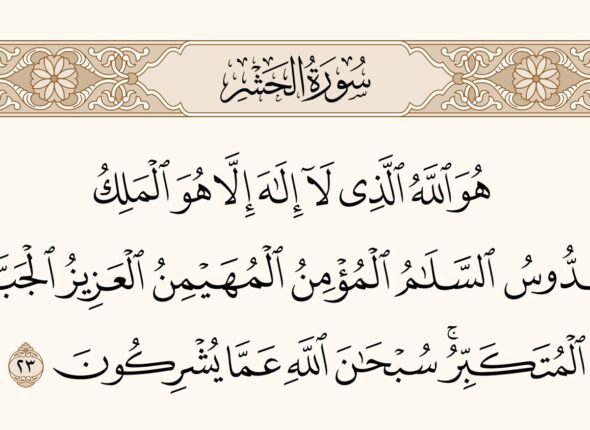 سُورَةُ الحَشْرِ
هُوَ ٱللَّهُ ٱلَّذِى لَآ إِلَٰهَ إِلَّا هُوَ ٱلْمَلِكُ
ـدُّوسُ ٱلسَّلَٰمُ ٱلْمُؤْمِنُ ٱلْمُهَيْمِنُ ٱلْعَزِيزُ ٱلْجَبَّـ
ٱلْمُتَكَبِّرُ ۚ سُبْحَٰنَ ٱللَّهِ عَمَّا يُشْرِكُونَ ٢٣